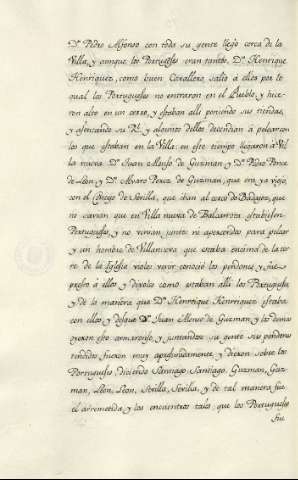 Dn. Pedro Alfonso con toda su gente llegó cerca de la
Villa, y aunque los Portugueses eran tantos, Dn. Henrique
Henriquez, como buen Cavallero, salió a ellos por lo
qual los Portugueses no entraron en el Pueblo y hicie-
ron alto en un cerro, y estaban alli poniendo sus tiendas,
y asentando su Rl. y algunos dellos decendian á pelear con
los que estaban en la Villa: en este tiempo llegaron á Vi-
lla nueva Dn. Juan Alonso de Guzman y Dn. Pedro Ponce
de Leon y Dn. Alvaro Perez de Guzman, que era ya viejo,
con el Concejo de Sevilla, que iban al cerco de Badajoz, que
ni savian que en Villa nueva de Balcarrota estubiesen
Portugueses, y no venian juntos ni apercevidos para pelear
y un hombre de Villanueva que estaba encima de la tor-
re de la Iglesia violos venir conoció los pendones y fue
presto a ellos y dijoles como estaban alli los Portugueses
y de la manera que Dn. Henrrique Henrriquez estaba
con ellos y desque Dn. Juan Alonso de Guzman y los demas
oyeron esto armaronse, y juntandose su gente sus pendones
tendidos fueron muy apresuradamente, y dieron sobre los
Portugueses, diciendo Santiago, Santiago, Guzman, Guz-
man, Leon, Leon, Sevilla, Sevilla, y de tal manera fue
el arremetida y los encuentros tales, que los Portugueses
fue